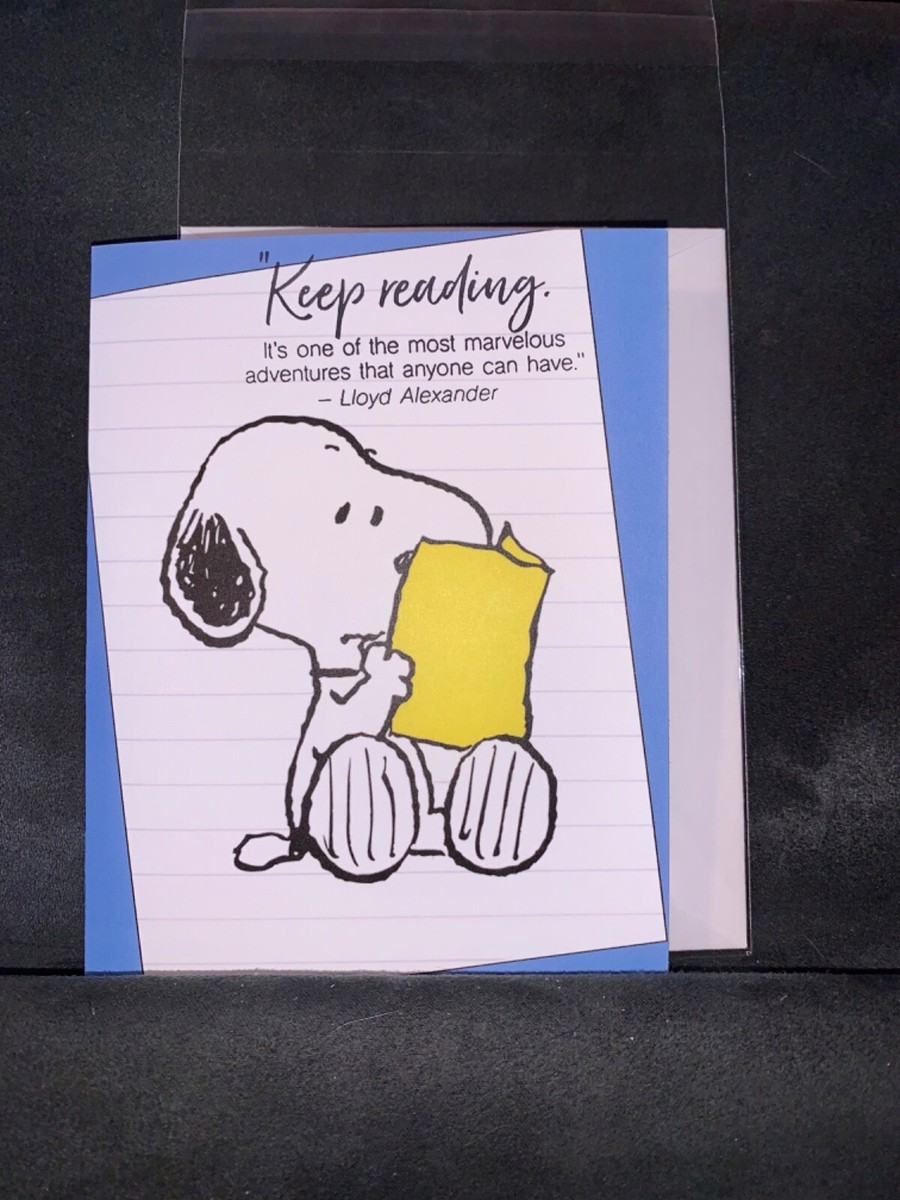 "Keep reading.
It's one of the most marvelous
adventures that anyone can have."
– Lloyd Alexander